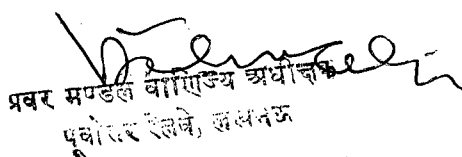 प्रवर मण्डल वाणिज्य अधीक्षक
पूर्वोत्तर रेलवे, लखनऊ